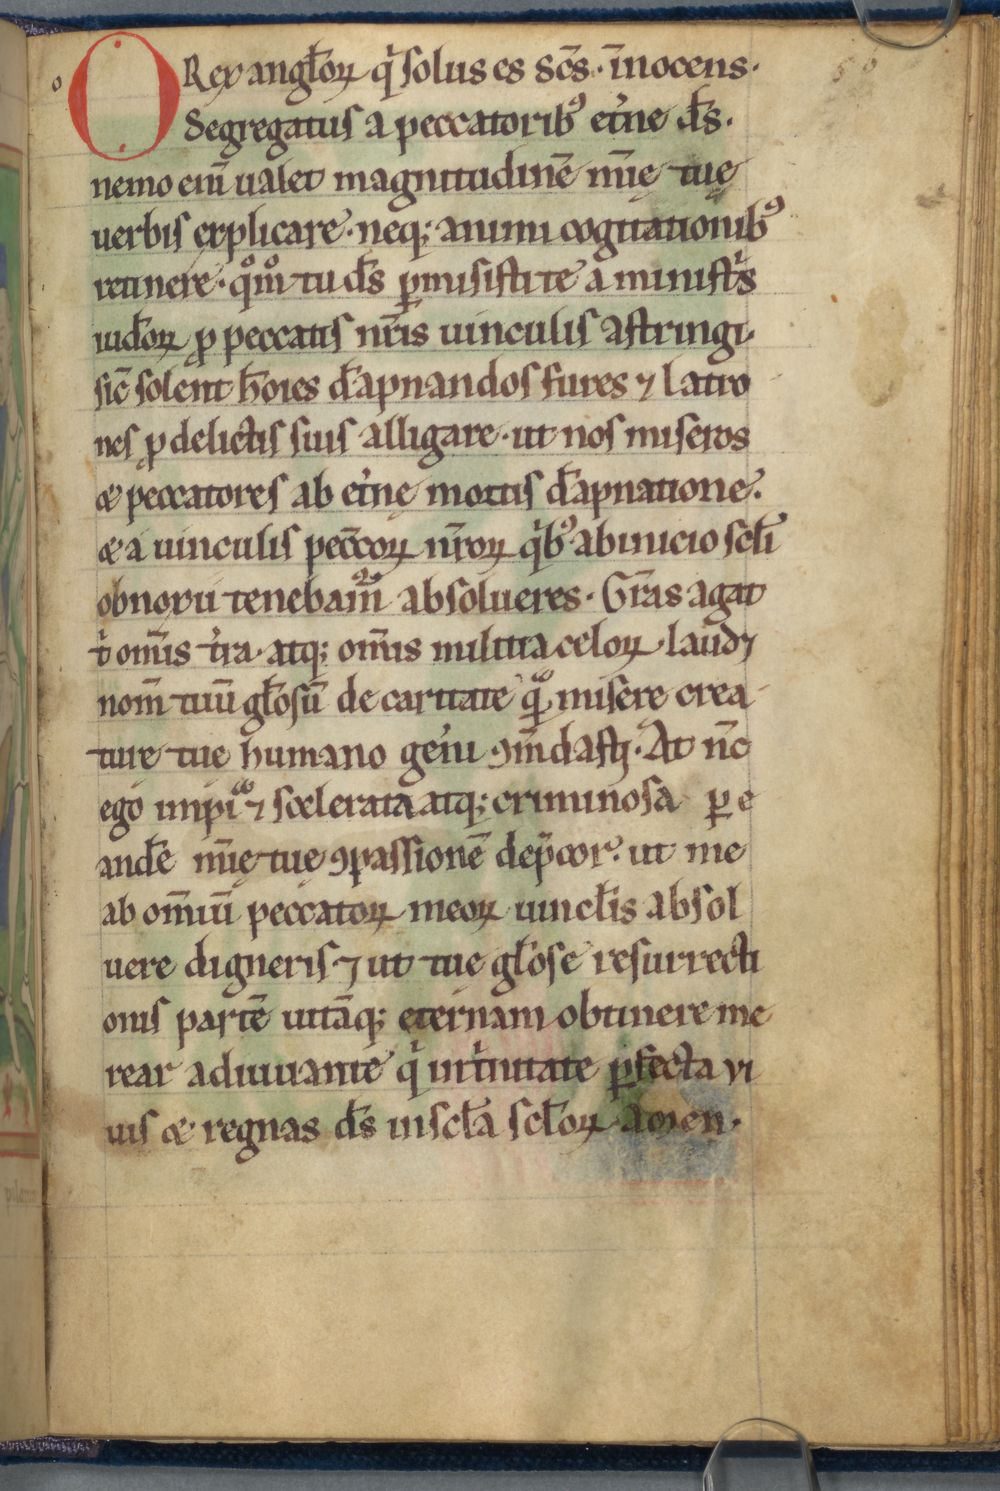 O Rex angl̄oꝝ q̇ solus es sc̄s· īnocens·
Segregatus a peccatorib᷒ et̓ne ds̄·
nemo eni̅ ualet magnitudinē mi̅ę tuę
uerbis explicare· neq; animi cogitationib᷒
retinere· qm̅ tu ds̄ ꝑmisisti te a ministris
iudeoꝝ ꝓ peccatis nr̄is uinculis astringi·
sic̄ solent hōies dāpnandos fures ⁊ latro
nes ꝓ delictis suis alligare· ut nos miseros
& peccatores ab et̓nę mortis dāpnatione·
& a uinculis pecc̄oꝝ nr̄oꝝ qˈb᷒ ab inicio sc̄li
obnoxii tenebam̄ absolueres· Gr̄as agat
t̓ om̄is t̓ra· atq; om̄is militia celoꝝ· laudꝫ
nom̄ tuū gl̄osū de caritate qͣ̄ misere crea
ture tue humano gen̓i ꝯm̄dasti· At nc̄
ego impia ⁊ scelerata atq; criminosa ꝑ e
andē mi̅ę tuę ꝯpassionē dep̄cor· ut me
ab om̄iū peccatoꝝ meoꝝ uincl̄is absol
uere digneris ⁊ ut tuę gl̄ose resurrecti
onis partē uitāq; eternam obtinere me
rear adiuuante q̓ in t̓nitate ꝑfecta vi
uis & regnas ds̄ in sc̄la sc̄loꝝ· amen·